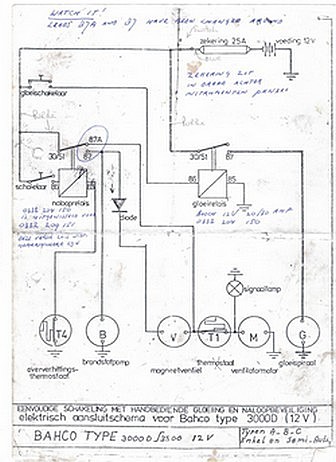 WATCH IT!
LEADS 87A AND 87 HAVE BEEN CHANGED AROUND
zekering 25A
voeding 12V
gloeischakelaar
ZEKERING ZIT
IN BRAND ACHTER
INSTRUMENTEN PANEEL
Relais
87A
30/51
87
30/51
87
schakelaar
86
85
86
85
nalooprelais
gloeirelais
0332 204 150
BOSCH 12V 20/30 AMP
0332 204 150
diode
signaallamp
T4
B
V
T1
M
G
oververhittings-
thermostaat
brandstofpomp
magneetventiel
thermostaat
ventilatormotor
gloeispiraal
EENVOUDIGE SCHAKELING MET HANDBEDIENDE GLOEIING EN NALOOPBEVEILIGING
elektrisch aansluitschema voor Bahco type 3000D (12V)
BAHCO TYPE 3000D/3500 12V
Typen A-B-C
Enkel en Semi-Auto.